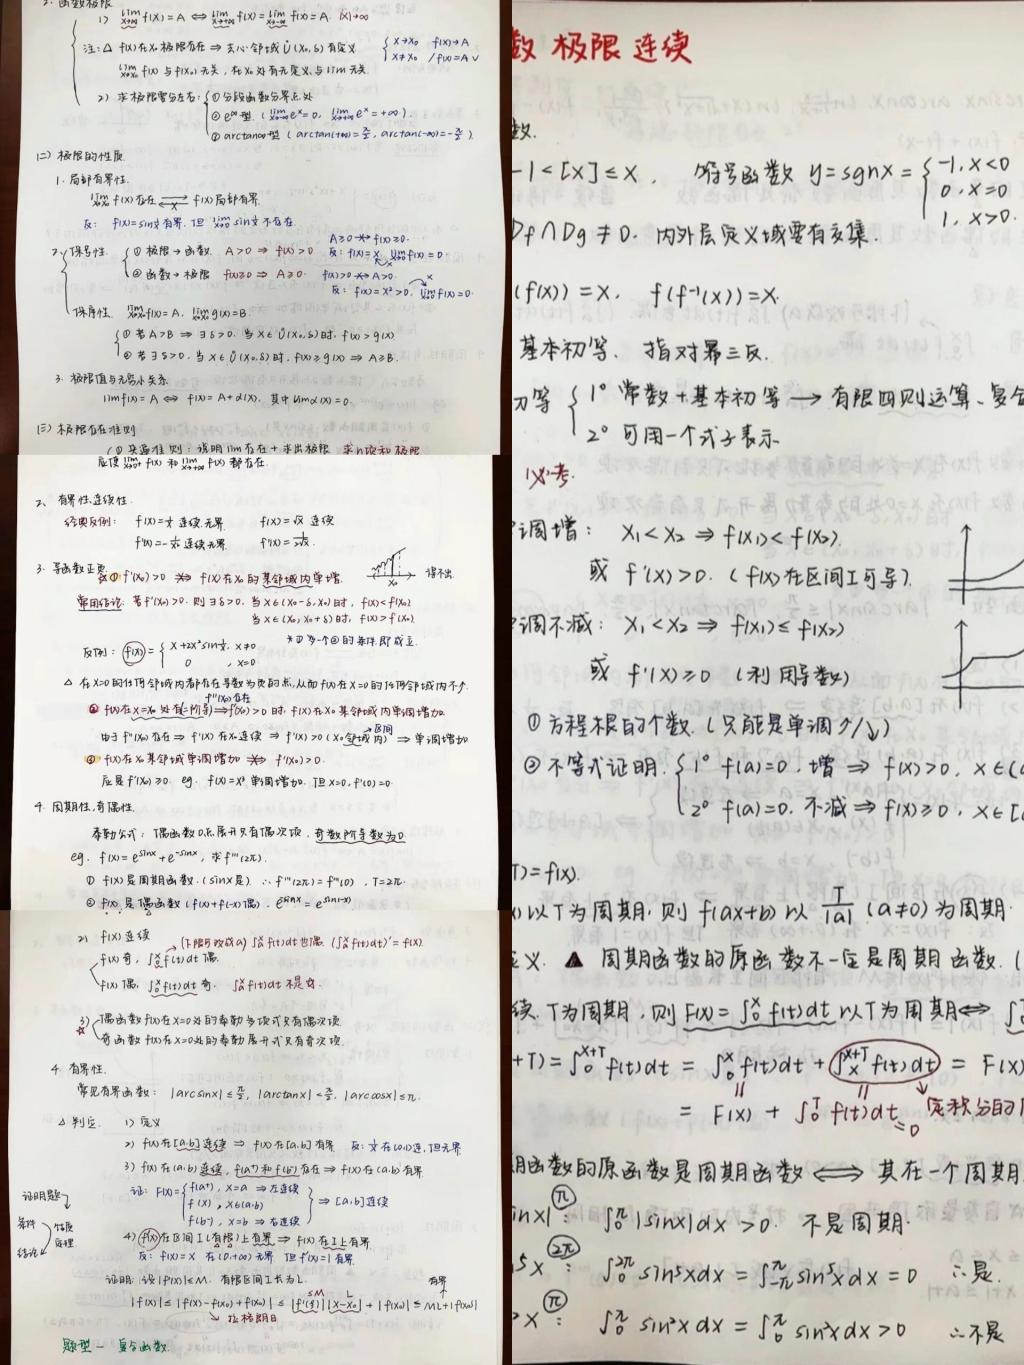 2. 函数极限
1) lim x→∞ f(x)=A ⇔ lim x→+∞ f(x)= lim x→-∞ f(x)=A. |x|→∞
注:△ f(x)在x₀极限存在 ⇒ 去心邻域Ů(x₀,δ)有定义 { x→x₀ f(x)→A
x≠x₀ / f(x)=A √
lim x→x₀ f(x)与f(x₀)无关,在x₀处有无定义与lim无关
2) 求极限需分左右: ①分段函数分界点处
② e^∞型 ( lim x→-∞ e^x=0, lim x→+∞ e^x=+∞ ).
③ arctan∞型 ( arctan(+∞)=π/2, arctan(-∞)=-π/2 )
(二) 极限的性质
1. 局部有界性.
lim x→x₀ f(x)存在 ⇄ f(x)局部有界
反: f(x)=sin1/x 有界, 但 lim x→0 sin1/x 不存在.
2. 保号性. ① 极限→函数. A>0 ⇒ f(x)>0 A≥0 ⇏ f(x)≥0.
② 函数→极限 f(x)≥0 ⇒ A≥0. f(x)>0 ⇏ A>0.
反: f(x)=x²>0, lim x→0 f(x)=0.
保序性. lim x→x₀ f(x)=A. lim x→x₀ g(x)=B.
① 若A>B ⇒ ∃δ>0. 当x∈Ů(x₀,δ)时, f(x)>g(x)
② 若∃δ>0. 当x∈Ů(x₀,δ)时, f(x)≥g(x) ⇒ A≥B.
3. 极限值与无穷小关系
limf(x)=A ⇔ f(x)=A+α(x), 其中limα(x)=0.
(三) 极限存在准则
① 夹逼准则: 说明lim存在+求出极限 求n项和极限
应该 f(x) 和 f(x) 都存在.
2. 有界性, 连续性.
经典反例: f(x)=1/x 连续, 无界. f(x)=√x 连续
f'(x)=-1/x² 连续无界 f'(x)=1/2√x
3. 导函数正负
① f'(x₀)>0 ⇏ f(x)在x₀的某邻域内单增. 得不出
常用结论: 若f'(x₀)>0. 则∃δ>0, 当x∈(x₀-δ,x₀)时, f(x)<f(x₀)
当x∈(x₀,x₀+δ)时, f(x)>f(x₀).
反例: f(x)= { x+2x²sin1/x, x≠0
0 , x=0
△ 在x=0的任何邻域内都存在导数为负的点,从而f(x)在x=0的任何邻域内不↗.
② f(x)在x=x₀处有二阶导, f'(x₀)>0时, f(x)在x₀某邻域内单调增加.
由于f''(x₀)存在 ⇒ f'(x)在x₀连续 ⇒ f'(x)>0 (x₀邻域内) ⇒ 单调增加
f(x)在x₀某邻域单调增加 ⇏ f'(x₀)>0.
应是f'(x₀)≥0. eg. f(x)=x³ 单调增加. 但x=0, f'(0)=0.
4. 周期性, 奇偶性.
泰勒公式: 偶函数0点展开只有偶次项, 奇数阶导数为0
eg. f(x)=e^sinx+e^-sinx, 求f'''(2π).
① f(x)是周期函数. (sinx是) ∴f'''(2π)=f'''(0), T=2π.
② f(x)是偶函数 (f(x)+f(-x)偶).
2) f(x)连续
(下限可改成a) ∫₀ˣf(t)dt也偶. (∫₀ˣf(t)dt)'=f(x)
f(x)奇, ∫₀ˣf(t)dt 偶
f(x)偶, ∫₀ˣf(t)dt 奇. ∫ₐˣf(t)dt 不是奇.
3) 偶函数f(x)在x=0处的泰勒多项式只有偶次项.
奇函数f(x)在x=0处的泰勒展开式只有奇次项.
4. 有界性.
常见有界函数: |arcsinx|≤π/2, |arctanx|<π/2, |arccosx|≤π.
△ 判定. 1) 定义
2) f(x)在[a,b]连续 ⇒ f(x)在[a,b]有界 反: 1/x在(0,1)连, 但无界
3) f(x)在(a,b)连续, f(a⁺)和f(b⁻)存在 ⇒ f(x)在(a,b)有界
证: F(x)= { f(a⁺), x=a ⇒ 右连续
f(x), x∈(a,b)
f(b⁻), x=b ⇒ 左连续 } ⇒ [a,b]连续
证明题
条件 性质
结论 定理
4) f'(x)在区间I(有限)上有界 ⇒ f(x)在I上有界
反: f(x)=x 在(0,+∞)无界 但f'(x)=1有界
证明: 设|f'(x)|≤M. 有限区间I长为L. 有界
|f(x)|≤|f(x)-f(x₀)+f(x₀)|≤|f'(ξ)||x-x₀|+|f(x₀)|≤ML+|f(x₀)|
拉格朗日
题型一 复合函数
数 极限 连续
数.
-1<[x]≤x. 符号函数 y=sgnx= { -1, x<0
0, x=0
1, x>0.
Df∩Dg≠∅. 内外层定义域要有交集.
(f(x))=x, f(f⁻¹(x))=x.
基本初等. 指对幂三反.
初等 { 1° 常数+基本初等 → 有限四则运算、复合
2° 可用一个式子表示
必考.
单调增: x₁<x₂ ⇒ f(x₁)<f(x₂).
或 f'(x)>0. (f(x)在区间I可导).
单调不减: x₁<x₂ ⇒ f(x₁)≤f(x₂)
或 f'(x)≥0 (利用导数)
① 方程根的个数. (只能是单调↗/↘)
② 不等式证明. { 1° f(a)=0, 增 ⇒ f(x)>0, x∈(
2° f(a)=0. 不减 ⇒ f(x)≥0, x∈[
T)=f(x).
x)以T为周期. 则f(ax+b)以 T/|a| (a≠0)为周期
定义. ▲ 周期函数的原函数不一定是周期函数. (
续. T为周期, 则F(x)=∫₀ˣf(t)dt以T为周期⇔ ∫
+T)=∫₀ˣ⁺ᵀf(t)dt = ∫₀ˣf(t)dt + ∫ₓˣ⁺ᵀf(t)dt = F(x)
= F(x) + ∫₀ᵀf(t)dt =0 定积分的
期函数的原函数是周期函数 ⇔ 其在一个周期
sinx| (π): ∫₀^π |sinx|dx>0. 不是周期.
⁵x (2π): ∫₀^2π sin⁵xdx = ∫₋π^π sin⁵xdx = 0 ∴是.
²x (π): ∫₀^π sin²xdx = ∫₀^π sin²xdx>0 ∴不是